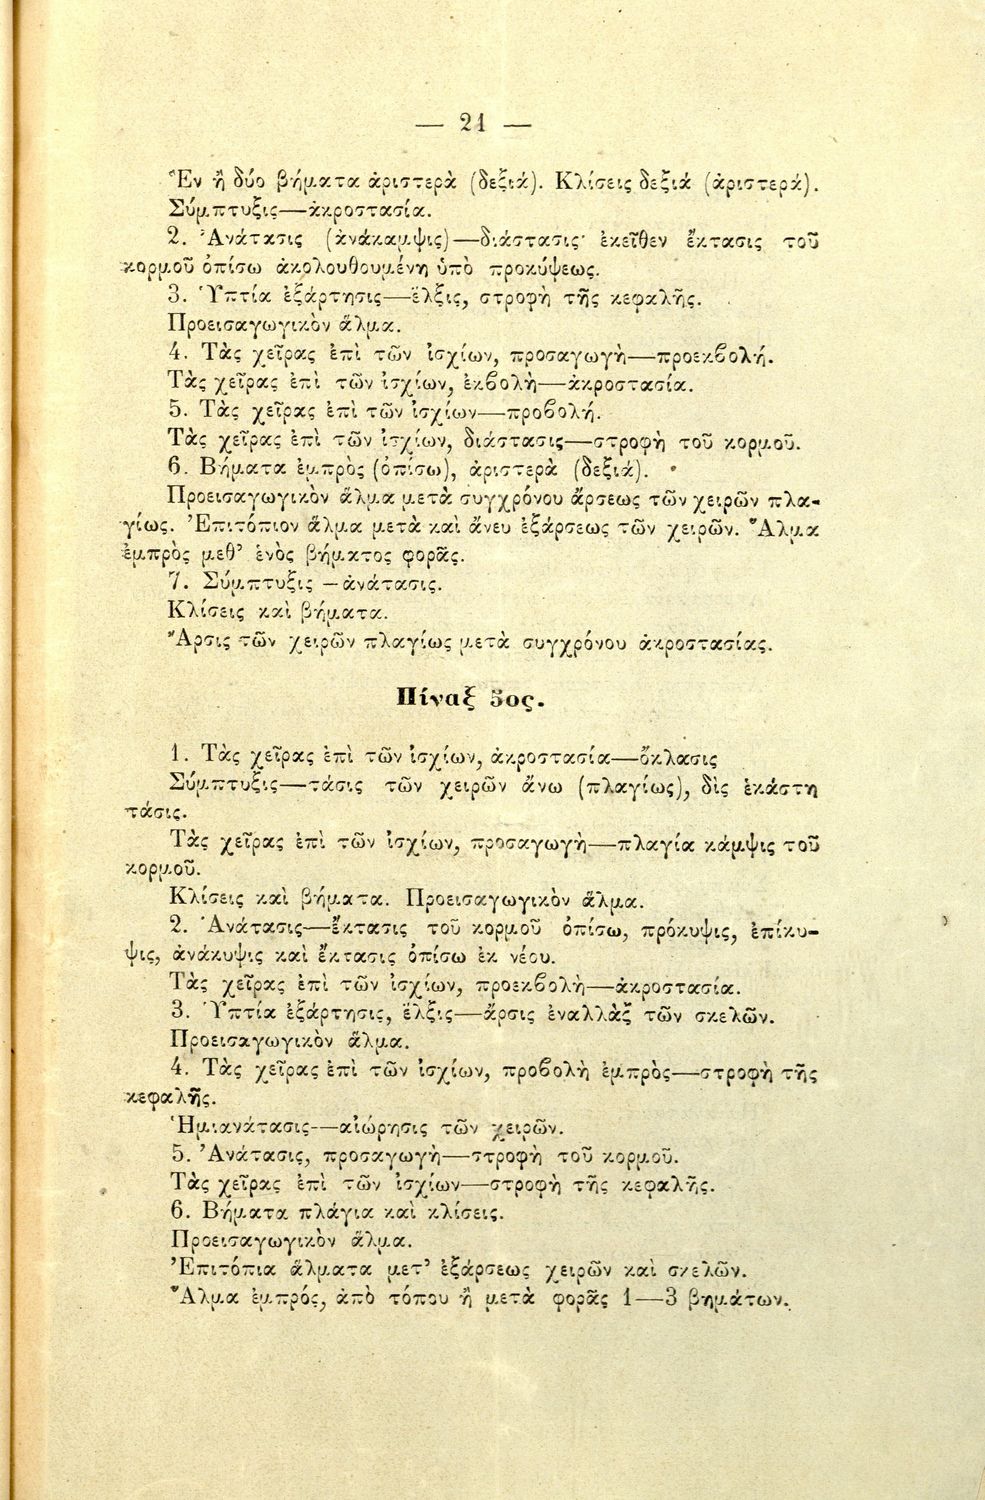 — 21 —
Ἓν ἢ δύο βήματα ἀριστερὰ (δεξιά). Κλίσεις δεξιά (ἀριστερά).
Σύμπτυξις—ἀκροστασία.
2. Ἀνάτασις (ἀνάκαμψις)—διάστασις· ἐκεῖθεν ἔκτασις τοῦ
κορμοῦ ὀπίσω ἀκολουθουμένη ὑπὸ προκύψεως.
3. Ὑπτία ἐξάρτησις—ἕλξις, στροφὴ τῆς κεφαλῆς.
Προεισαγωγικὸν ἅλμα.
4. Τὰς χεῖρας ἐπὶ τῶν ἰσχίων, προσαγωγὴ—προεκβολή.
Τὰς χεῖρας ἐπὶ τῶν ἰσχίων, ἐκβολὴ—ἀκροστασία.
5. Τὰς χεῖρας ἐπὶ τῶν ἰσχίων—προβολή.
Τὰς χεῖρας ἐπὶ τῶν ἰσχίων, διάστασις—στροφὴ τοῦ κορμοῦ.
6. Βήματα ἐμπρὸς (ὀπίσω), ἀριστερὰ (δεξιά).
Προεισαγωγικὸν ἅλμα μετὰ συγχρόνου ἄρσεως τῶν χειρῶν πλα-
γίως. Ἐπιτόπιον ἅλμα μετὰ καὶ ἄνευ ἐξάρσεως τῶν χειρῶν. Ἅλμα
ἐμπρὸς μεθ’ ἑνὸς βήματος φορᾶς.
7. Σύμπτυξις —ἀνάτασις.
Κλίσεις καὶ βήματα.
Ἄρσις τῶν χειρῶν πλαγίως μετὰ συγχρόνου ἀκροστασίας.
Πίναξ 5ος.
1. Τὰς χεῖρας ἐπὶ τῶν ἰσχίων, ἀκροστασία—ὄκλασις
Σύμπτυξις—τάσις τῶν χειρῶν ἄνω (πλαγίως), δὶς ἑκάστη
τάσις.
Τὰς χεῖρας ἐπὶ τῶν ἰσχίων, προσαγωγὴ—πλαγία κάμψις τοῦ
κορμοῦ.
Κλίσεις καὶ βήματα. Προεισαγωγικὸν ἅλμα.
2. Ἀνάτασις—ἔκτασις τοῦ κορμοῦ ὀπίσω, πρόκυψις, ἐπίκυ-
ψις, ἀνάκυψις καὶ ἔκτασις ὀπίσω ἐκ νέου.
Τὰς χεῖρας ἐπὶ τῶν ἰσχίων, προεκβολὴ—ἀκροστασία.
3. Ὑπτία ἐξάρτησις, ἕλξις—ἄρσις ἐναλλὰξ τῶν σκελῶν.
Προεισαγωγικὸν ἅλμα.
4. Τὰς χεῖρας ἐπὶ τῶν ἰσχίων, προβολὴ ἐμπρὸς—στροφὴ τῆς
κεφαλῆς.
Ἡμιανάτασις—αἰώρησις τῶν χειρῶν.
5. Ἀνάτασις, προσαγωγὴ—στροφὴ τοῦ κορμοῦ.
Τὰς χεῖρας ἐπὶ τῶν ἰσχίων—στροφὴ τῆς κεφαλῆς.
6. Βήματα πλάγια καὶ κλίσεις.
Προεισαγωγικὸν ἅλμα.
Ἐπιτόπια ἅλματα μετ’ ἐξάρσεως χειρῶν καὶ σκελῶν.
Ἅλμα ἐμπρός, ἀπὸ τόπου ἢ μετὰ φορᾶς 1—3 βημάτων.